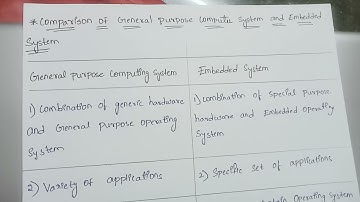 * Comparison of General Purpose Computic System and Embedded
System
General Purpose Computing System
Embedded System
1) Combination of generic hardware
and General Purpose Operating
System
1) Combination of special purpose
hardware and Embedded Operating
System
2) Variety of applications
2) Specific set of applications
Operating System